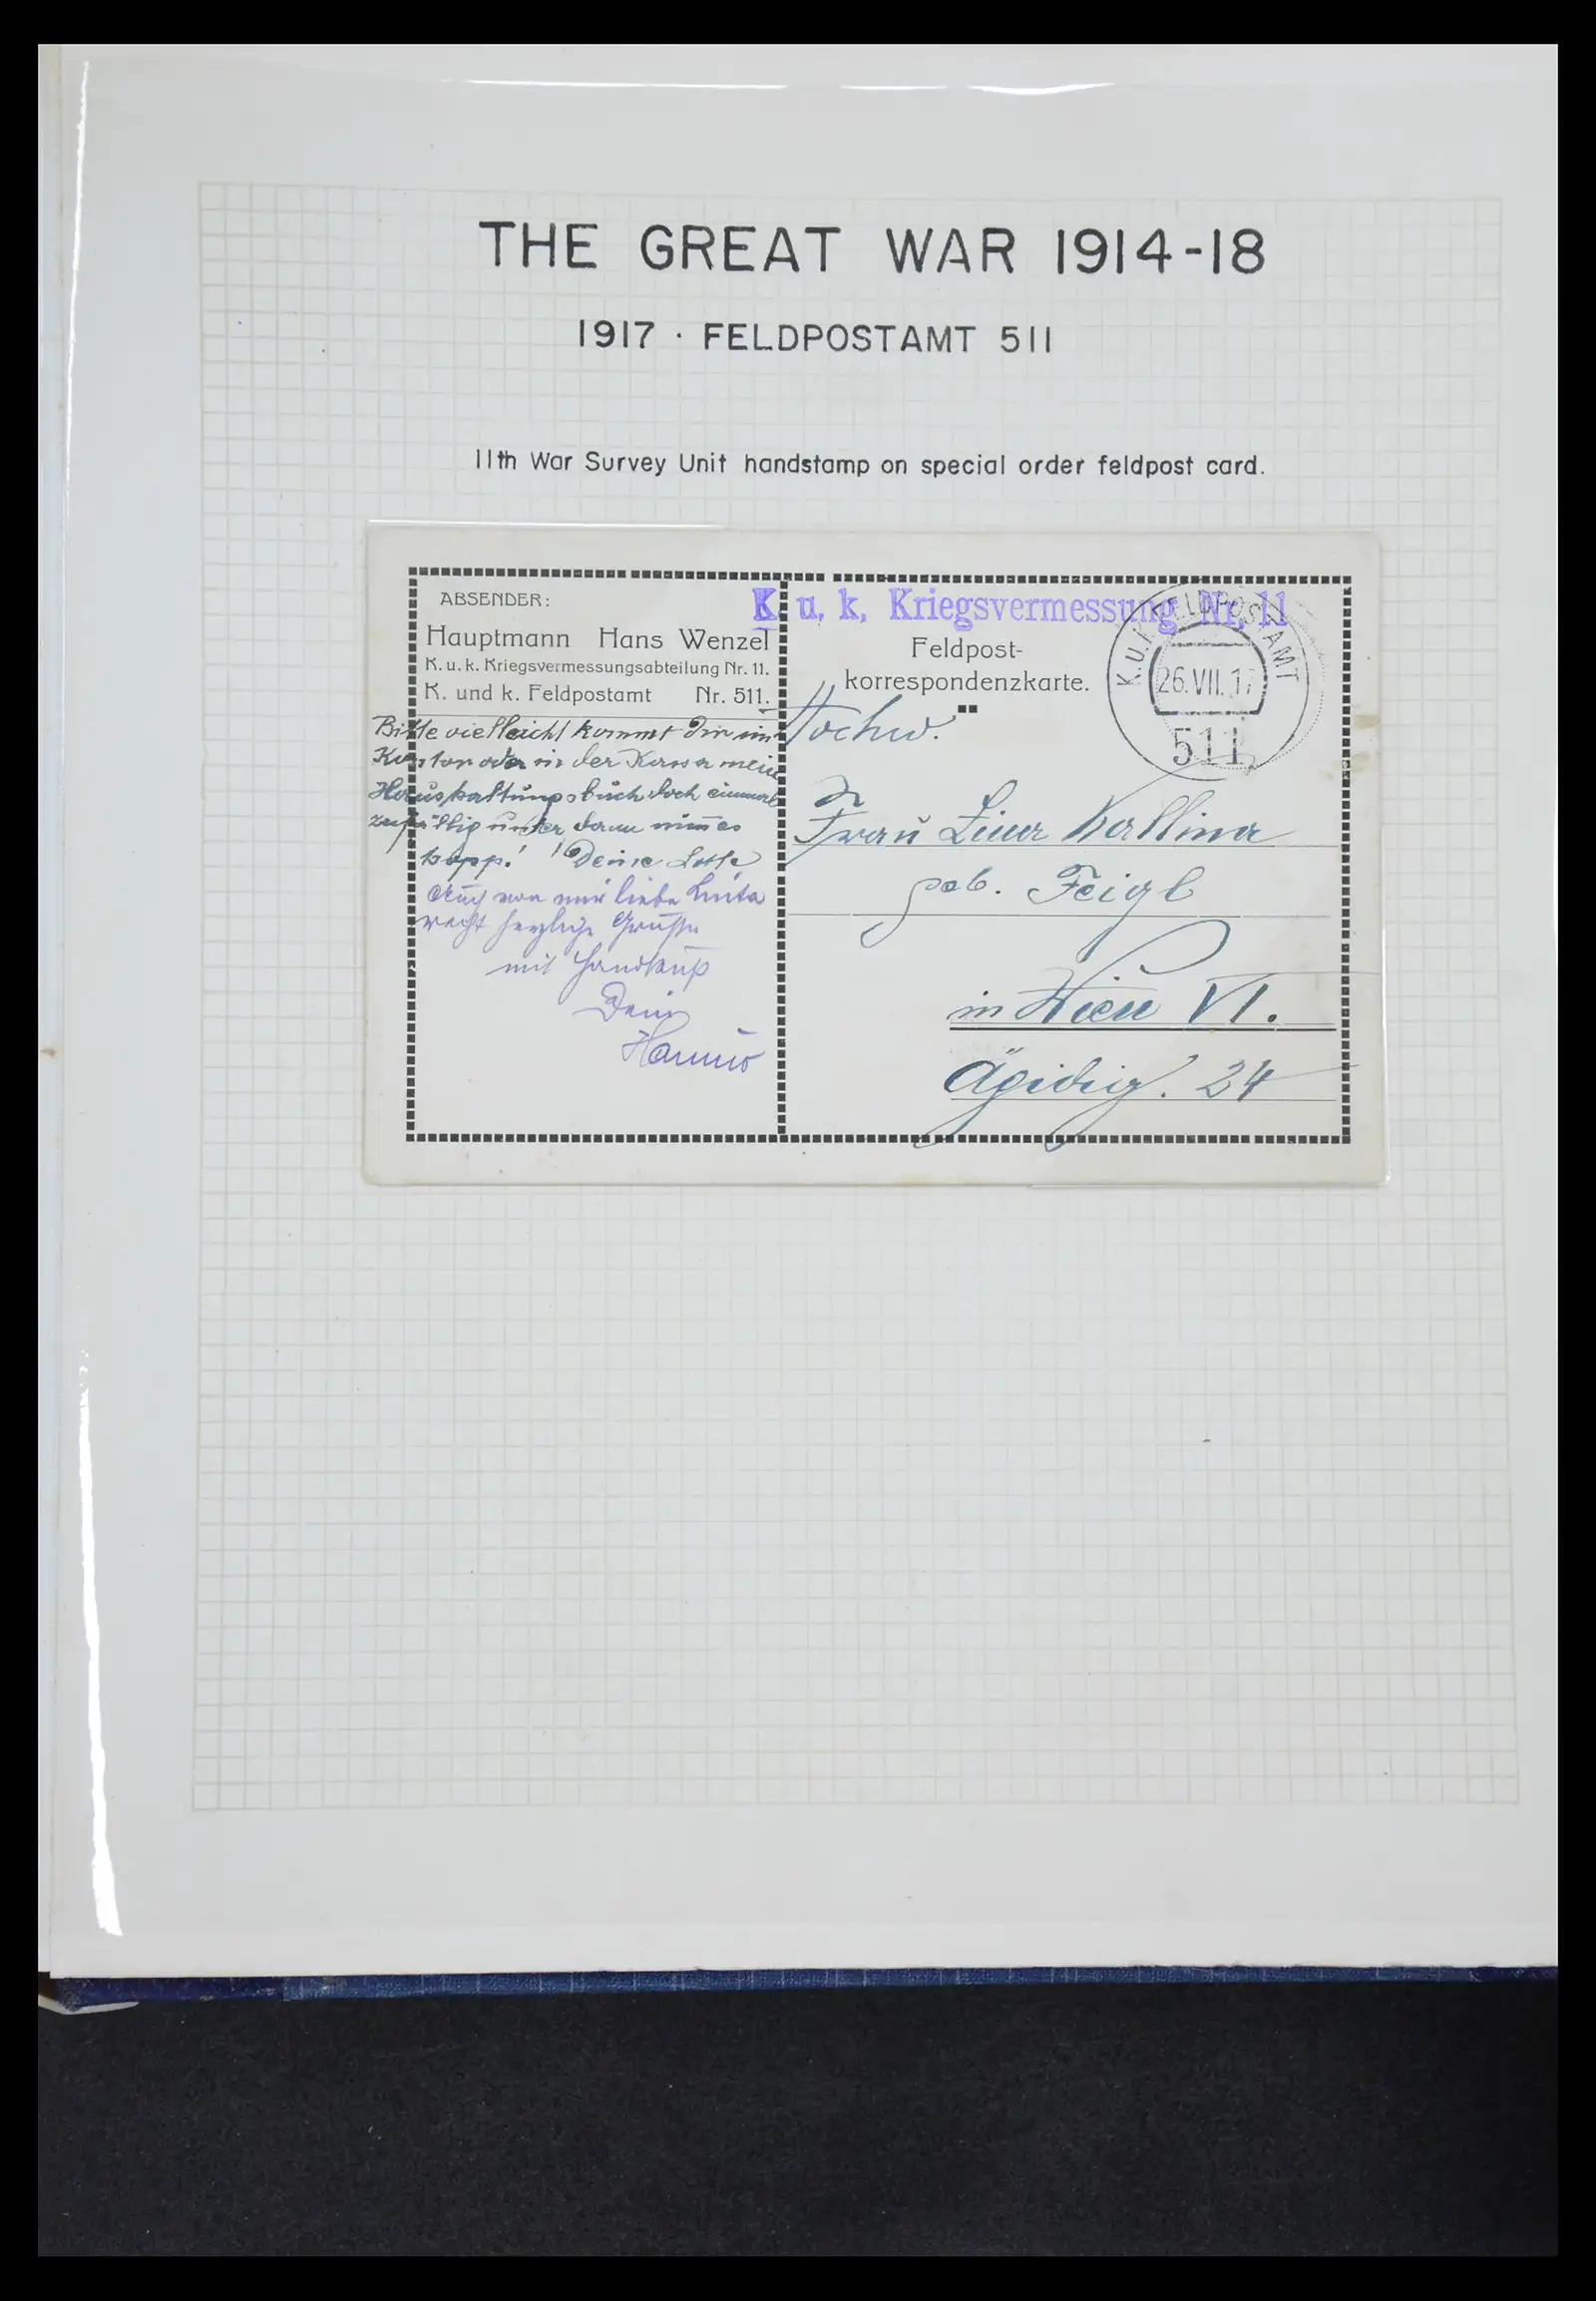 THE GREAT WAR 1914-18
1917 · FELDPOSTAMT 511
11th War Survey Unit handstamp on special order feldpost card.
ABSENDER:
Hauptmann Hans Wenzel
K. u. k. Kriegsvermessungsabteilung Nr. 11.
K. und k. Feldpostamt Nr. 511.
Bitte vielleicht kommt Dir im
Kontor oder in der Kassa mein
Haushaltungsbuch doch einmal
zufällig unter dann nimm es
Deine Lotte
Auch von mir liebe
recht herzliche Grüße
mit Handkuß
Dein
Hanno
K. u. k. Kriegsvermessung Nr. 11
Feldpost-
korrespondenzkarte.
K.u.K. FELDPOSTAMT
26.VII.17
511
Hochw.
Frau Kallina
geb. Feigl
in Wien VI.
Ägidig. 24